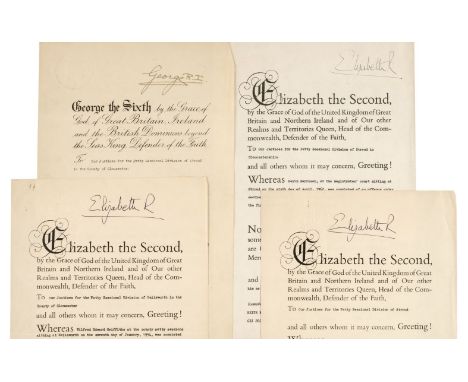 George R.I
George the Sixth, by the Grace of
God of Great Britain, Ireland
and the British Dominions beyond
the Seas King, Defender of the Faith
To Our Justices for the Petty Sessional Division of Stroud
in the County of Gloucester
Elizabeth R
Elizabeth the Second,
by the Grace of God of the United Kingdom of Great
Britain and Northern Ireland and of Our other
Realms and Territories Queen, Head of the Com-
monwealth, Defender of the Faith,
To Our Justices for the Petty Sessional Division of Stroud in
Gloucestershire
and all others whom it may concern, Greeting!
Whereas
Elizabeth R
Elizabeth the Second,
by the Grace of God of the United Kingdom of Great
Britain and Northern Ireland and of Our other
Realms and Territories Queen, Head of the Com-
monwealth, Defender of the Faith,
To Our Justices for the Petty Sessional Division of in the
County of Gloucester
and all others whom it may concern, Greeting!
Whereas Wilfred Edward Griffiths at the county petty sessions
Elizabeth R
Elizabeth the Second,
by the Grace of God of the United Kingdom of Great
Britain and Northern Ireland and of Our other
Realms and Territories Queen, Head of the Com-
monwealth, Defender of the Faith,
To Our Justices for the Petty Sessional Division of Stroud
and all others whom it may concern, Greeting!